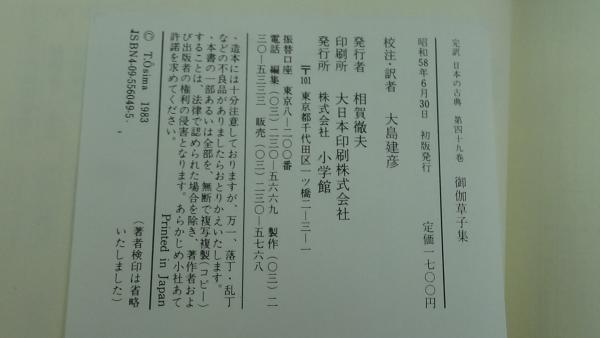 完訳 日本の古典 第四十九巻 御伽草子集
昭和58年6月30日 初版発行 定価一七〇〇円
校注・訳者 大島建彦
発行者 相賀徹夫
印刷所 大日本印刷株式会社
発行所 株式会社 小学館
〒101 東京都千代田区一ツ橋二―三―一
振替口座 東京八―二〇〇番
電話 編集(〇三)二三〇―五六六九 製作(〇三)二
三〇―五三三三 販売(〇三)二三〇―五七六八
・造本には十分注意しておりますが、万一、落丁・乱丁
などの不良品がありましたらおとりかえいたします。
・本書の一部あるいは全部を、無断で複写複製(コピー)
することは、法律で認められた場合を除き、著作者およ
び出版者の権利の侵害となります。あらかじめ小社あて
許諾を求めてください。
Printed in Japan
© T.Ōsima 1983
ISBN4-09-556049-5
(著者検印は省略
いたしました)